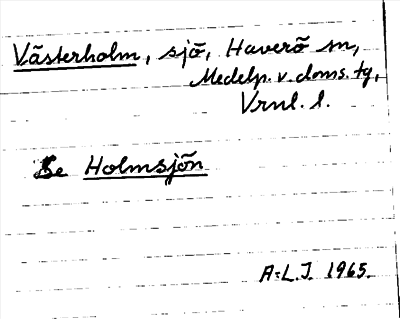 Västerholm, sjö, Haverö sn,
Medelp. v. doms. tg,
Vrnl. l.
Se Holmsjön
A-L.J. 1965.